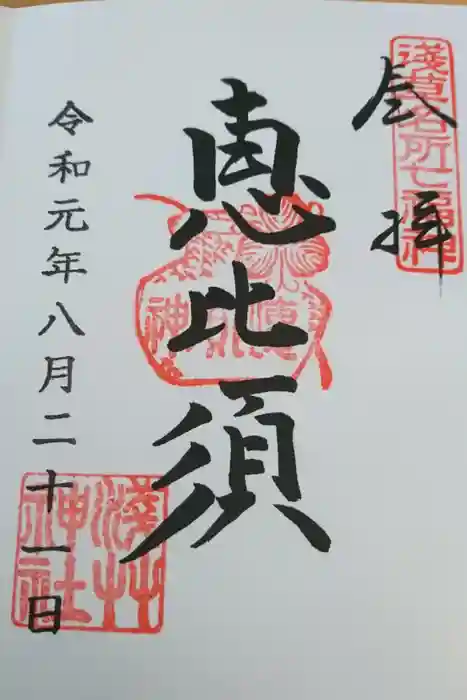 奉拝
浅草名所七福神
恵比須
令和元年八月二十一日
浅草神社